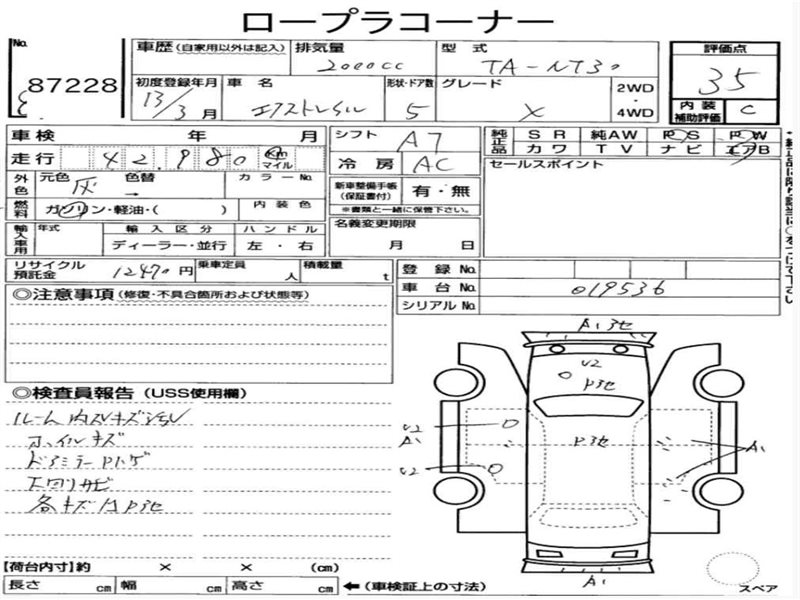 ロープラコーナー
No.
87228
車歴(自家用以外は記入) 排気量 型式 評価点
2000cc TA-NT30 35
初度登録年月 車名 形状・ドア数 グレード 2WD
13/3月 エクストレイル 5 X 4WD 内装補助評価 C
車検 年 月 シフト AT 純正品 SR 純AW PS PW
カワ TV ナビ エアB
走行 42,980 km マイル 冷房 AC セールスポイント
外色 元色 灰 色替 → カラーNo. 新車整備手帳(保証書付) 有・無
※書類と一緒に保管下さい。
燃料 ガソリン・軽油・( ) 内装色 名義変更期限
輸入車用 年式 輸入区分 ハンドル 月 日
ディーラー・並行 左・右
リサイクル預託金 12470円 乗車定員 人 積載量 t 登録No.
車台No. 019536
シリアルNo.
◎注意事項(修復・不具合箇所および状態等)
◎検査員報告(USS使用欄)
ルーム内スレキズ
ホイルキズ
ドアミラーPハゲ
下回りサビ
各キズ凹Pヨセ
A1 Pヨセ
U2
Pヨセ
U2
A1
Pヨセ
A1
U2
A1
スペア
【荷台内寸】約 × × (cm)
長さ cm 幅 cm 高さ cm ←(車検証上の寸法)